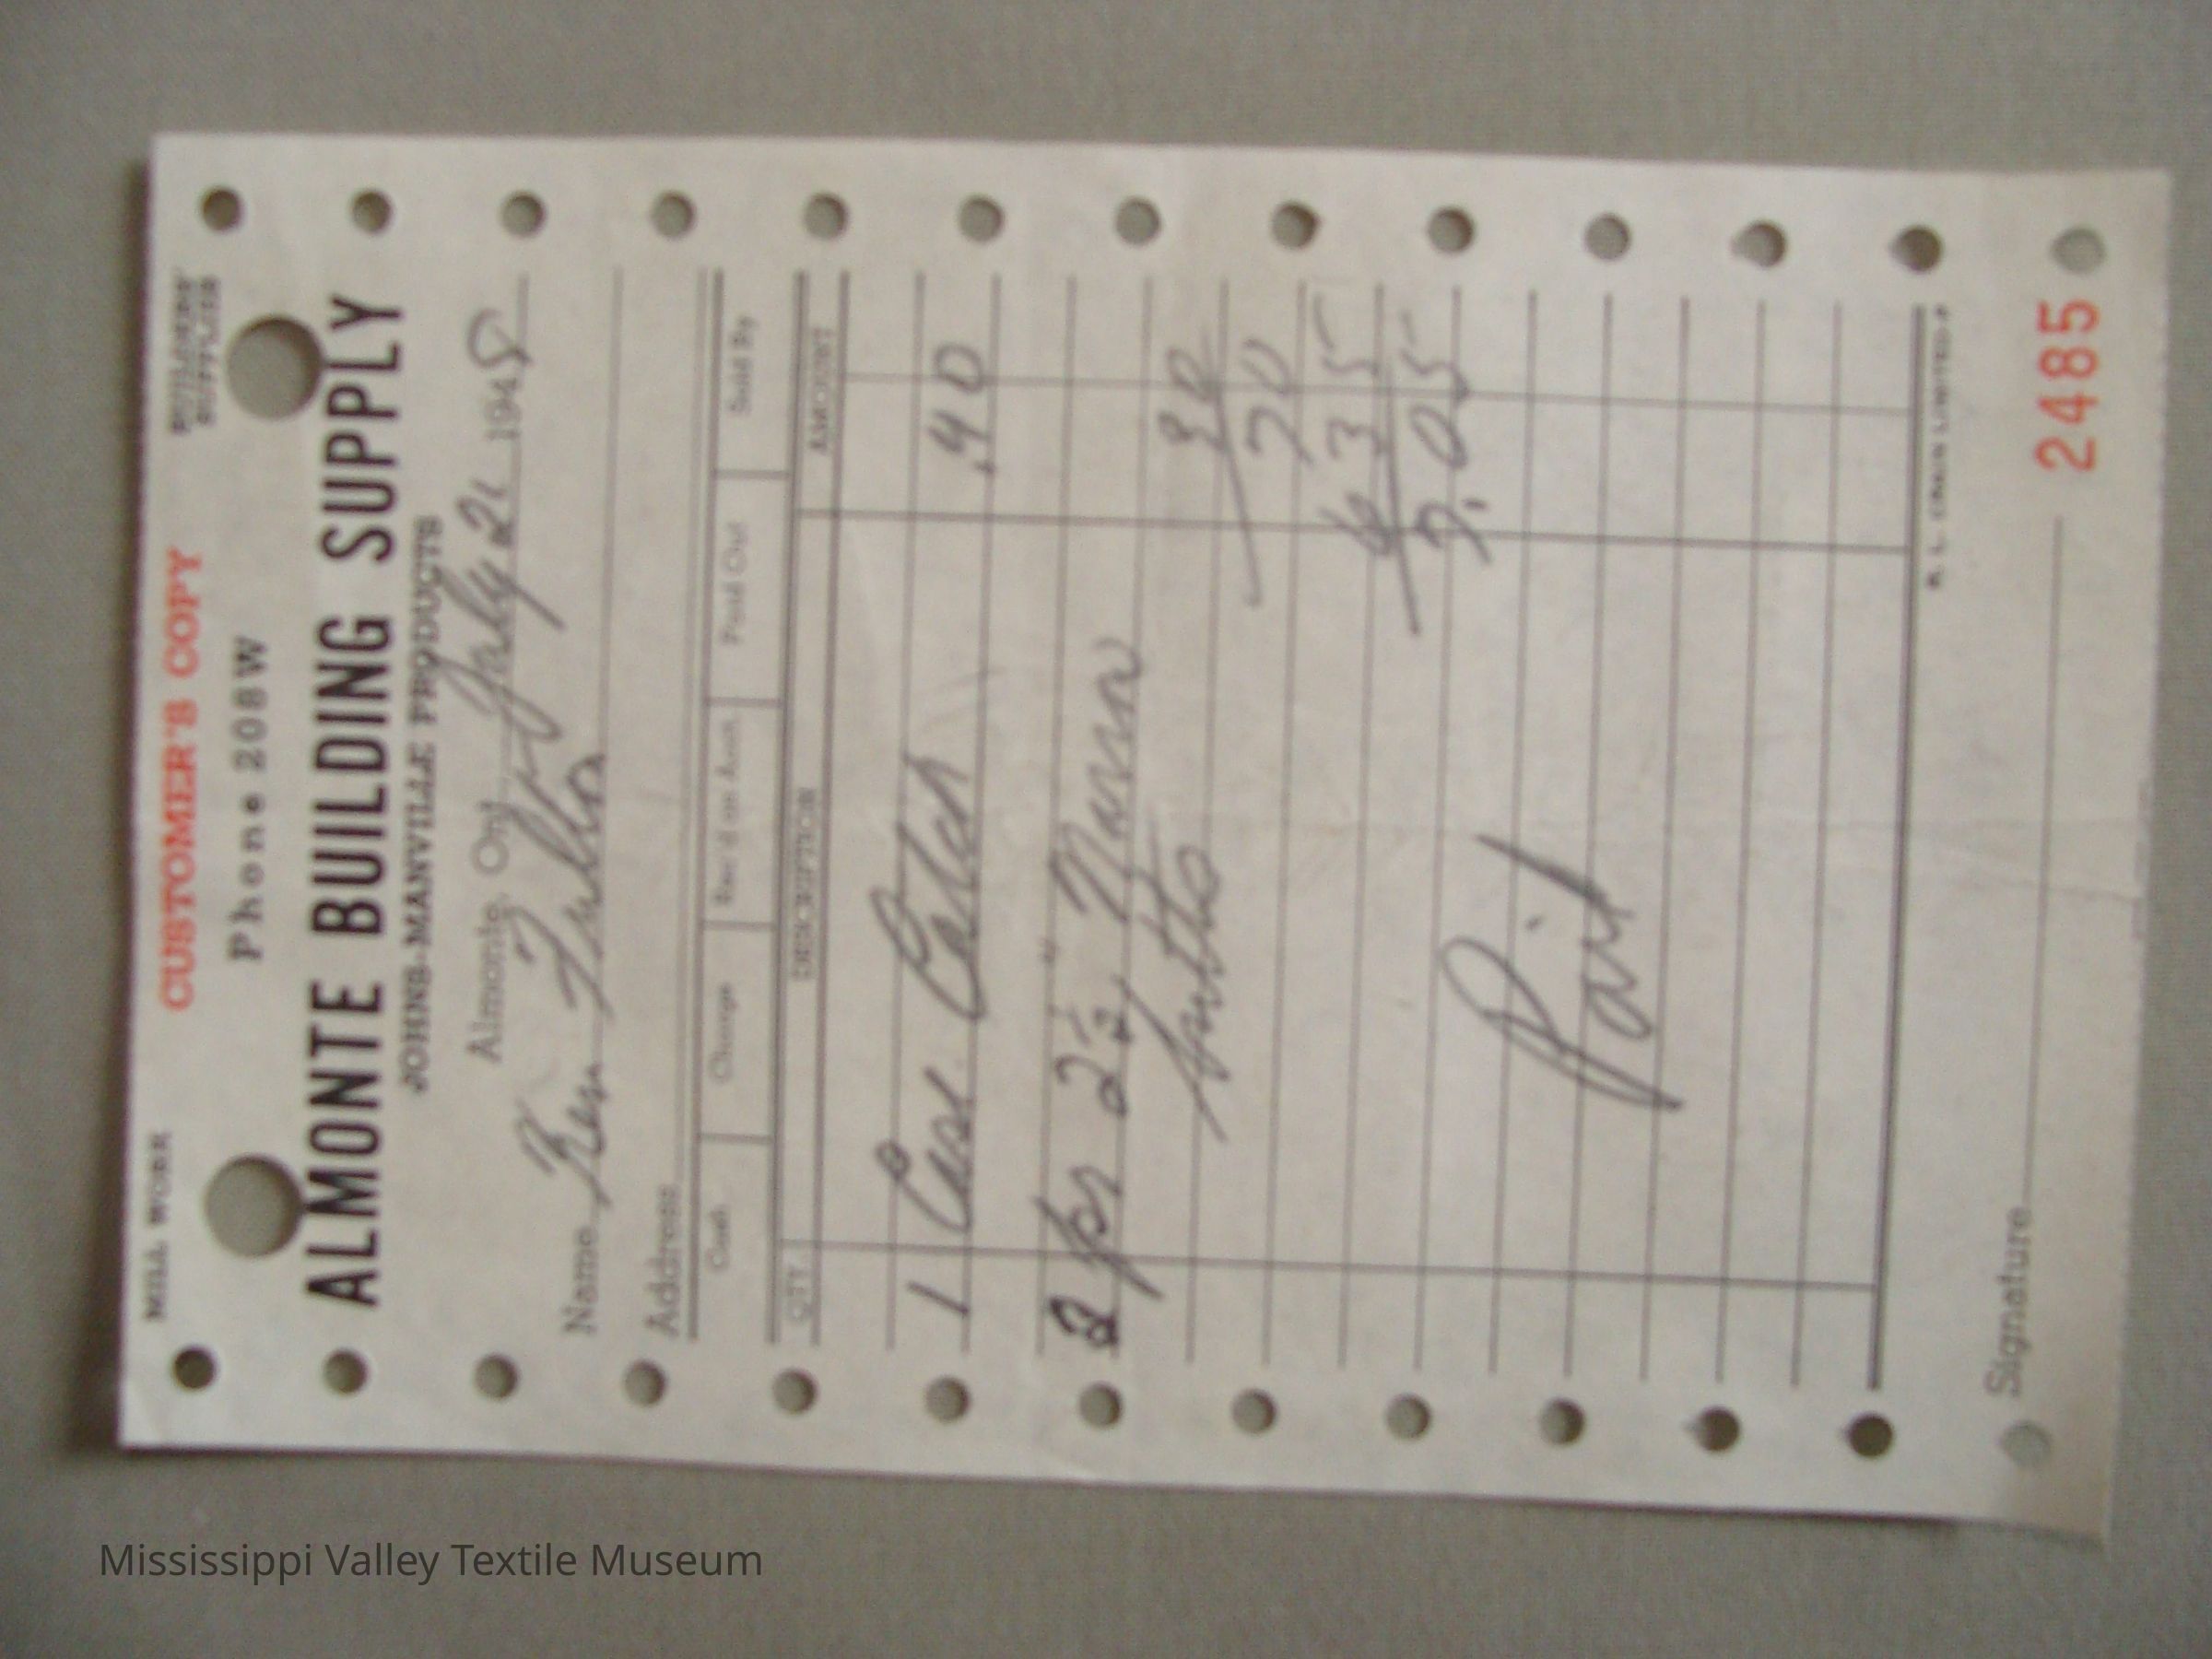 MILL WORK
CUSTOMER'S COPY
BUILDERS' SUPPLIES
Phone 208W
ALMONTE BUILDING SUPPLY
JOHNS-MANVILLE PRODUCTS
Almonte, Ont. July 21 1948
Name Ken Fulton
Address
Cash Charge Rec'd on Acct. Paid Out Sold By
QTY. DESCRIPTION AMOUNT
1 Case Catch .40
2 pr 2½"
Butts 30
70
35
.05
Paid
R. L. CRAIN LIMITED
Signature
2485
Mississippi Valley Textile Museum